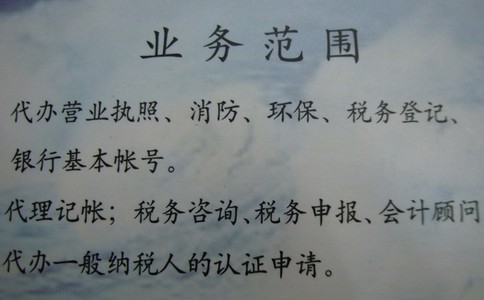 业务范围
代办营业执照、消防、环保、税务登记、
银行基本帐号。
代理记帐；税务咨询、税务申报、会计顾问
代办一般纳税人的认证申请。